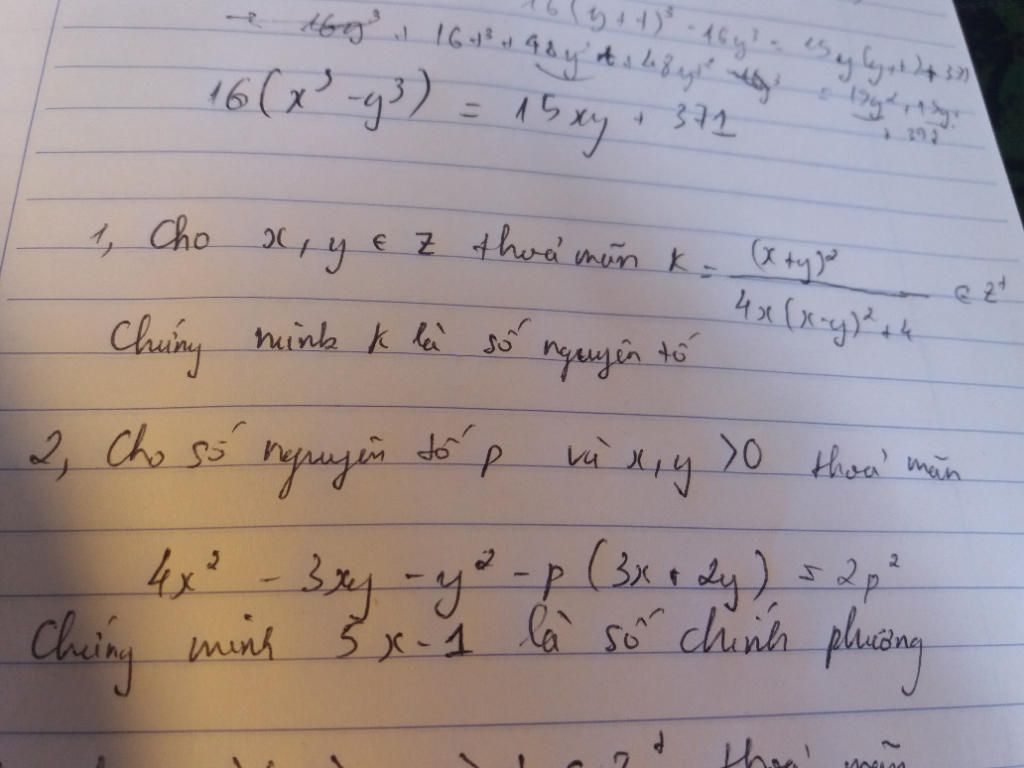 16(y+1)³ - 16y³ = 15y(y+1)+371
16(x³ - y³) = 15xy + 371
1, Cho x, y ∈ Z thoả mãn k = (x+y)² / 4x(x-y)²+4 ∈ Z⁺
Chứng minh k là số nguyên tố
2, Cho số nguyên tố p và x, y >0 thoả mãn
4x² - 3xy - y² - p(3x + 2y) = 2p²
Chứng minh 5x-1 là số chính phương
thoả mãn